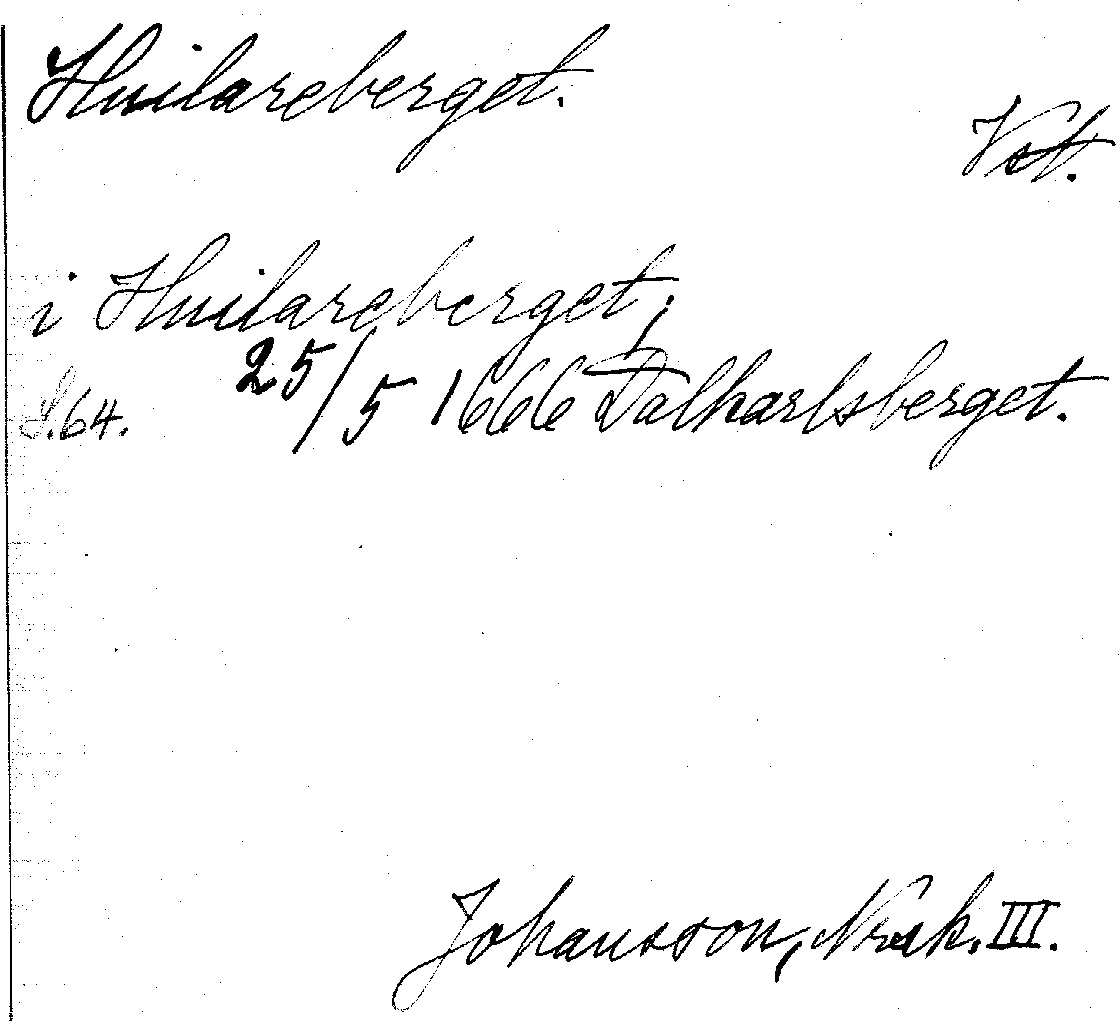 Huilareberget.
Vst.
i Huilareberget;
S.64. 25/5 1666 Dalkarlsberget.
Johansson, Nrak. III.